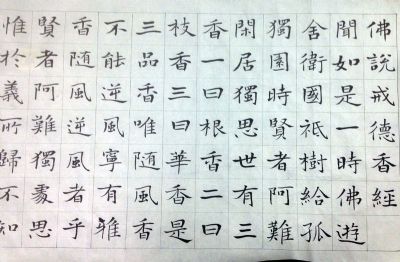 佛說戒德香經
聞如是一時佛遊
舍衛國祇樹給孤
獨園時賢者阿難
閑居獨思世有三
香一曰根香二曰
枝香三曰華香是
三品香唯随風香
不能逆風寧有雅
香随風逆風者乎
賢者阿難獨處思
惟於義所歸不知